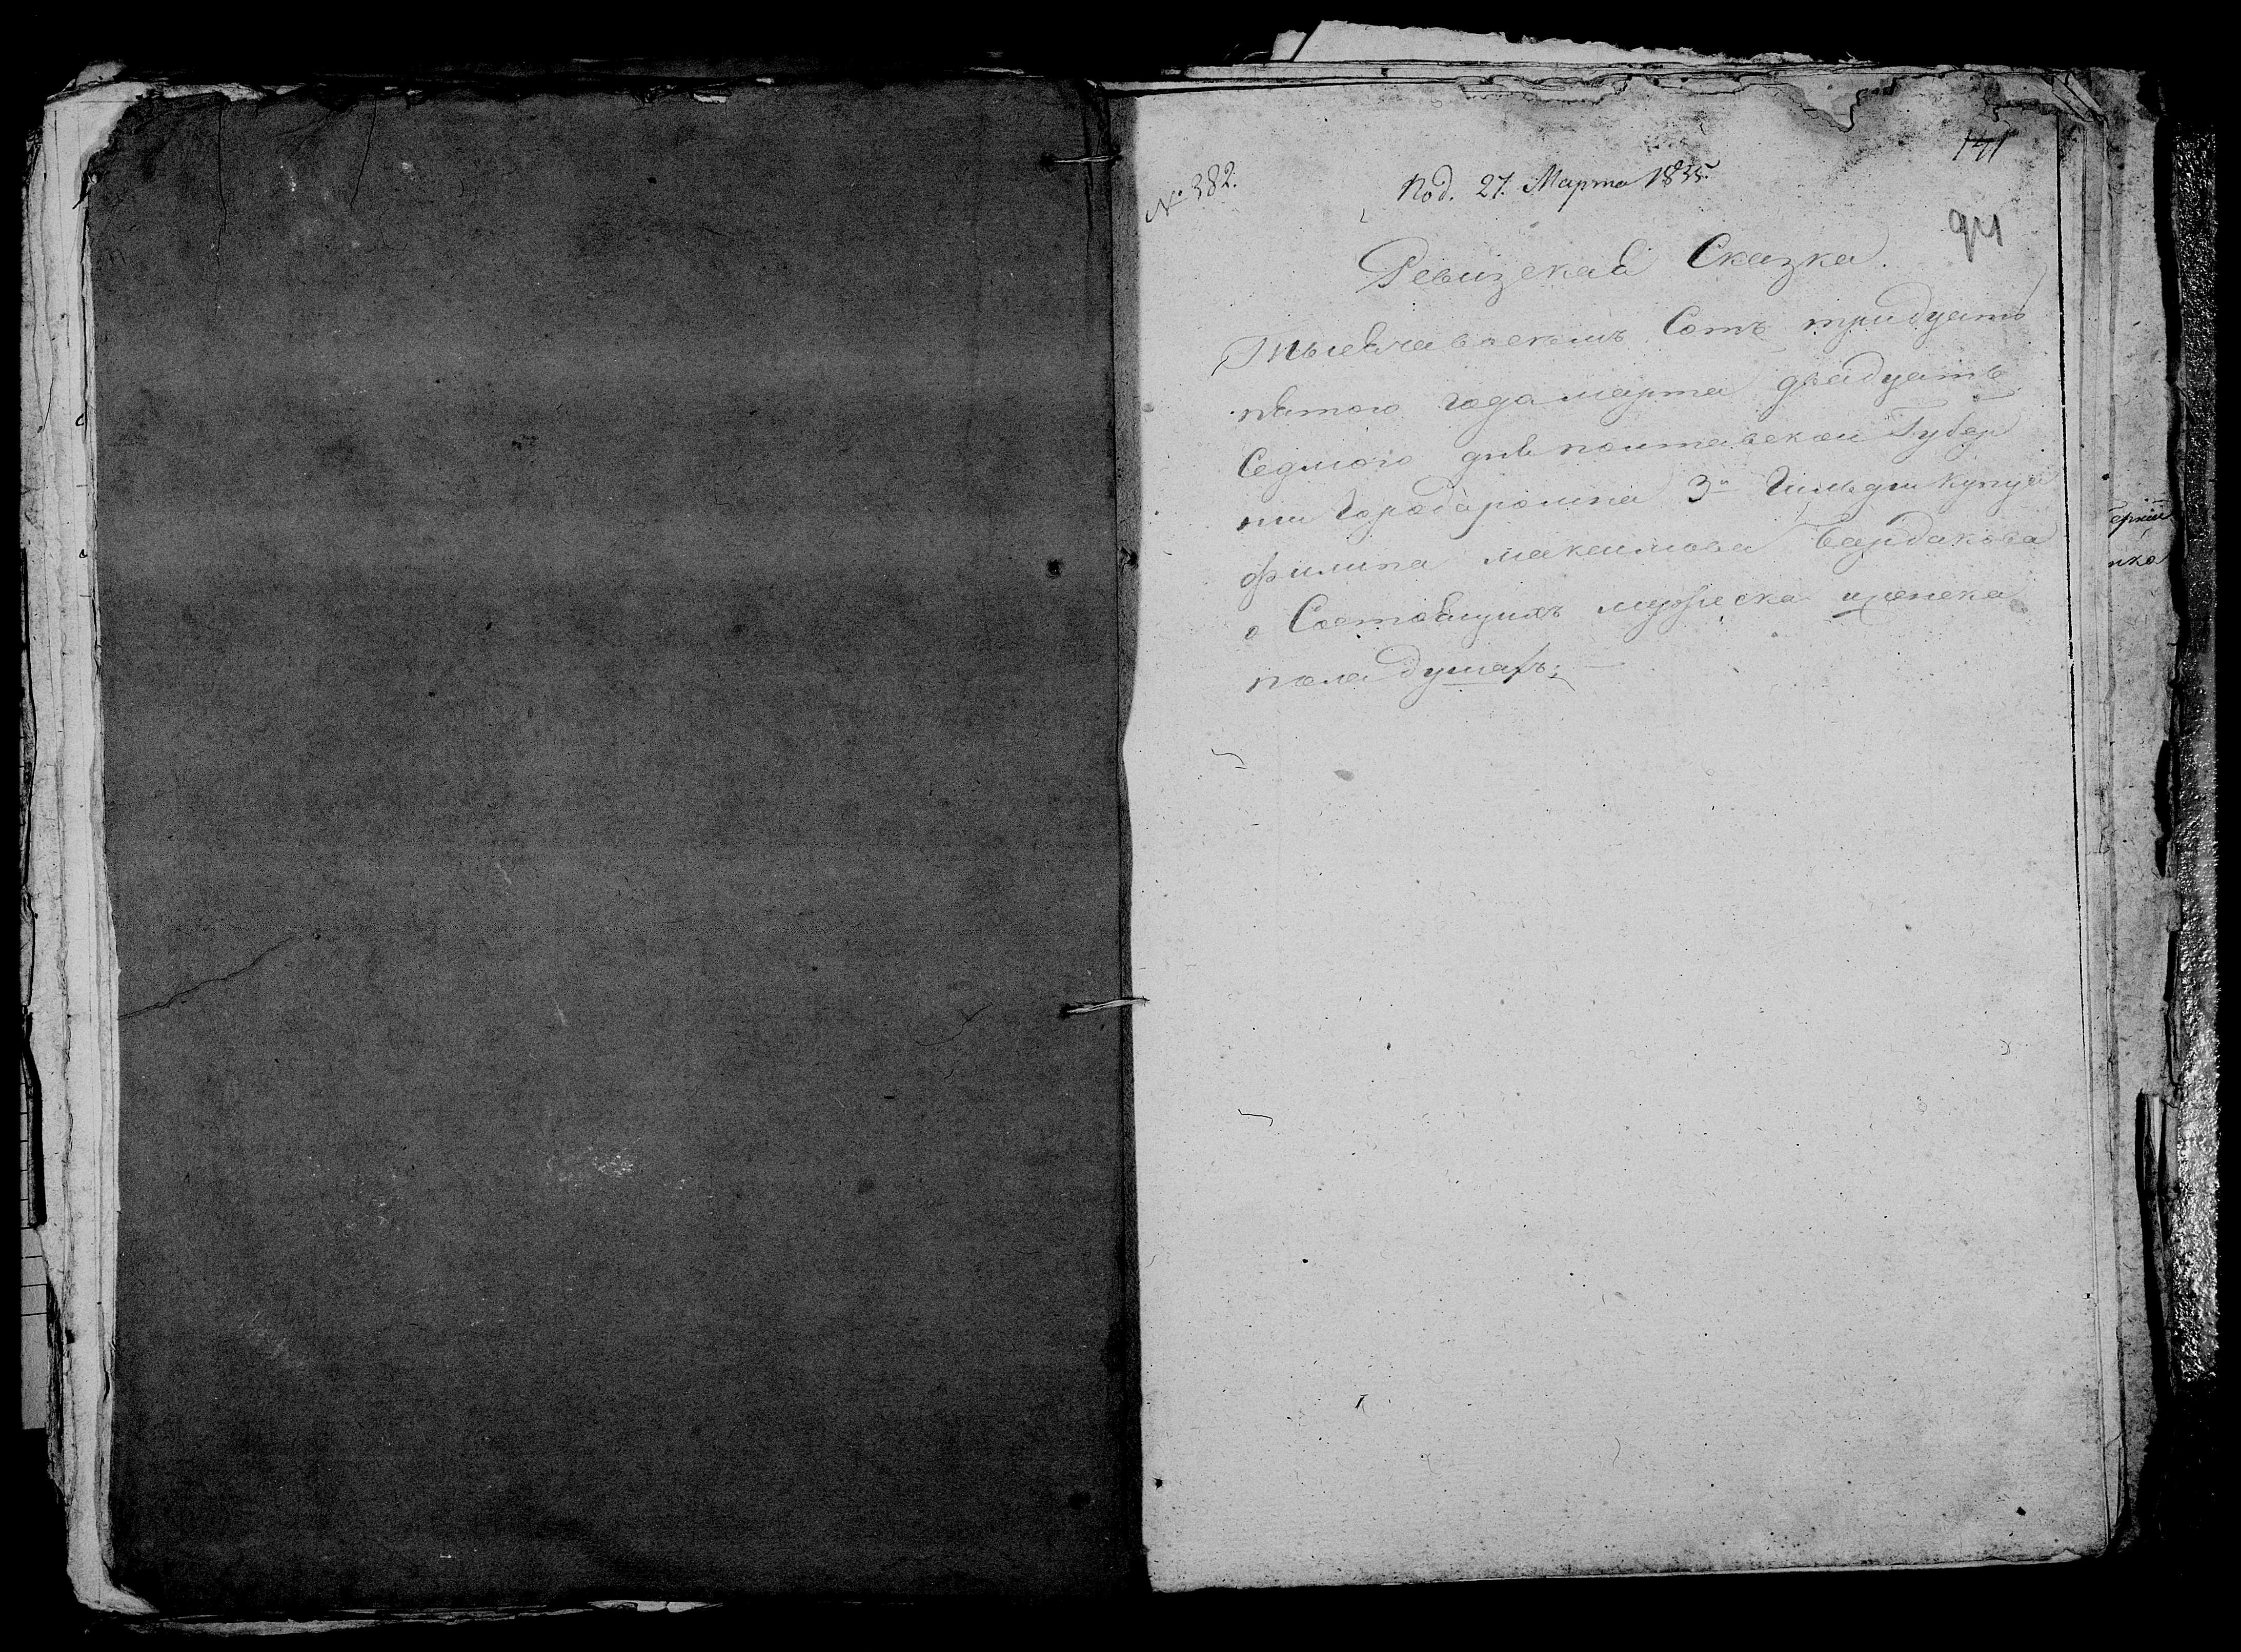 141
№ 382.
Под. 27. Марта 1835.
94
Ревизская Сказка.
Тысечавосемъ Сотъ тридцать
пятого года марта двадцать
Седмого дня полтавской Губер
нии Города ромна 3й Гильдии Купца
филипа максимова Бардакова
о Состоящихъ мужеска иженска
пола душахъ: